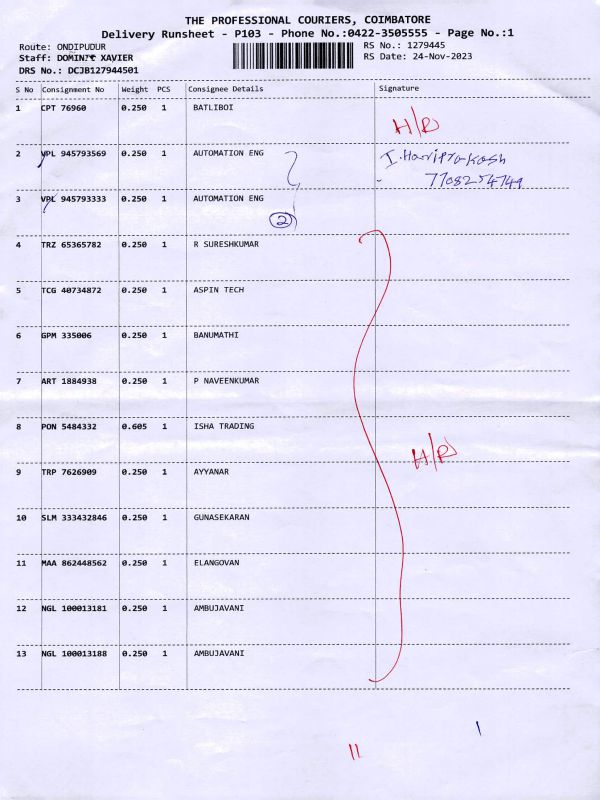 THE PROFESSIONAL COURIERS, COIMBATORE
Delivery Runsheet - P103 - Phone No.:0422-3505555 - Page No.:1
Route: ONDIPUDUR RS No.: 1279445
Staff: DOMINIC XAVIER RS Date: 24-Nov-2023
DRS No.: DCJB127944501
S No Consignment No Weight PCS Consignee Details Signature
1 CPT 76960 0.250 1 BATLIBOI
H/R
2 VPL 945793569 0.250 1 AUTOMATION ENG I. Hariprakash
7708254749
3 VPL 945793333 0.250 1 AUTOMATION ENG
2
4 TRZ 65365782 0.250 1 R SURESHKUMAR
5 TCG 40734872 0.250 1 ASPIN TECH
6 GPM 335006 0.250 1 BANUMATHI
7 ART 1884938 0.250 1 P NAVEENKUMAR
8 PON 5484332 0.605 1 ISHA TRADING
H/R
9 TRP 7626909 0.250 1 AYYANAR
10 SLM 333432846 0.250 1 GUNASEKARAN
11 MAA 862448562 0.250 1 ELANGOVAN
12 NGL 100013181 0.250 1 AMBUJAVANI
13 NGL 100013188 0.250 1 AMBUJAVANI
11 1